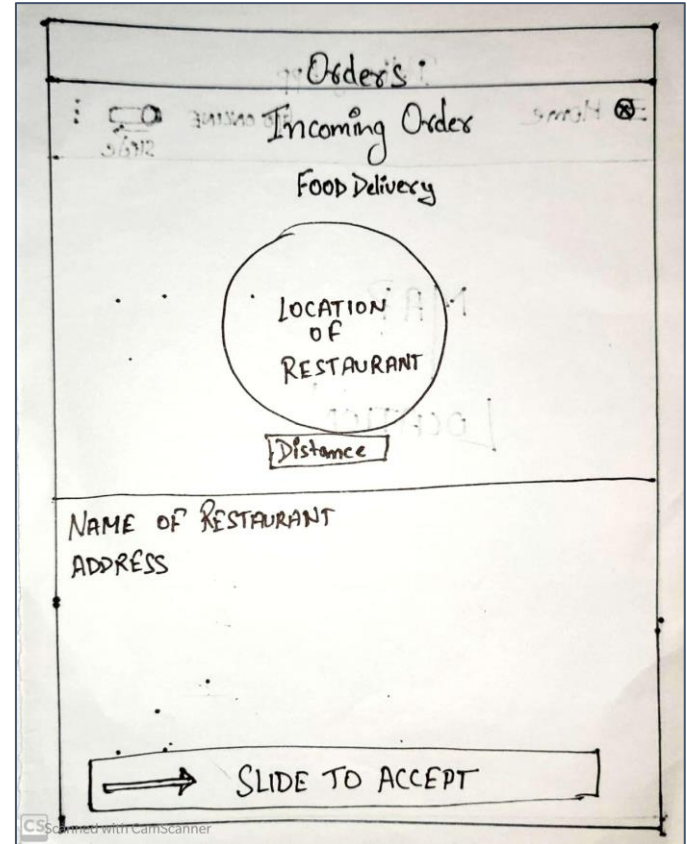 Order's
Incoming Order
FOOD Delivery
LOCATION
OF
RESTAURANT
Distance
NAME OF RESTAURANT
ADDRESS
SLIDE TO ACCEPT
CS Scanned with CamScanner